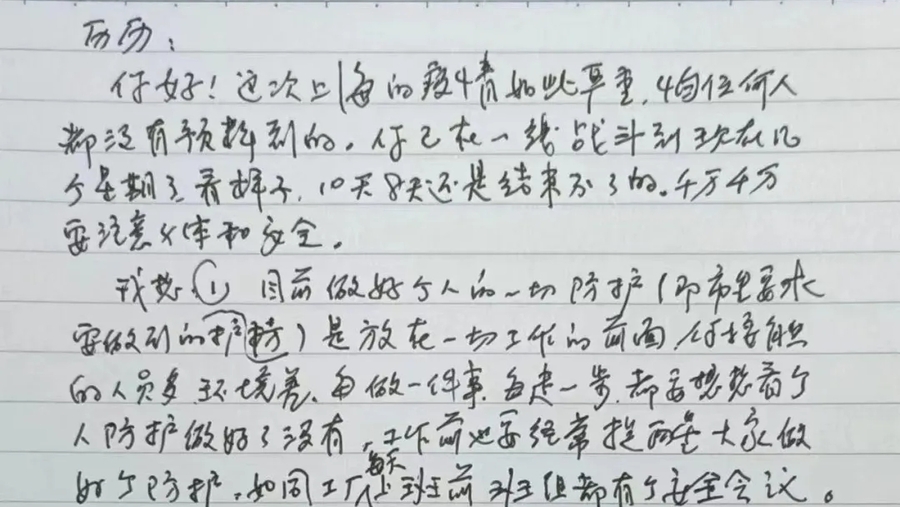 历历：
你好！这次上海的疫情如此严重，恐怕任何人
都没有预料到的。你已在一线战斗到现在几
个星期了，看样子，10天8天还是结束不了的。千万千万
要注意身体和安全。
我想，① 目前做好个人的一切防护（即市里要求
要做到的防护）是放在一切工作的前面，你接触
的人员多环境差、每做一件事、每走一步，都要想想看个
人防护做好了没有，工作前也要经常提醒大家做
好个防护。如同工厂每天上班前班组都有个安全会议。